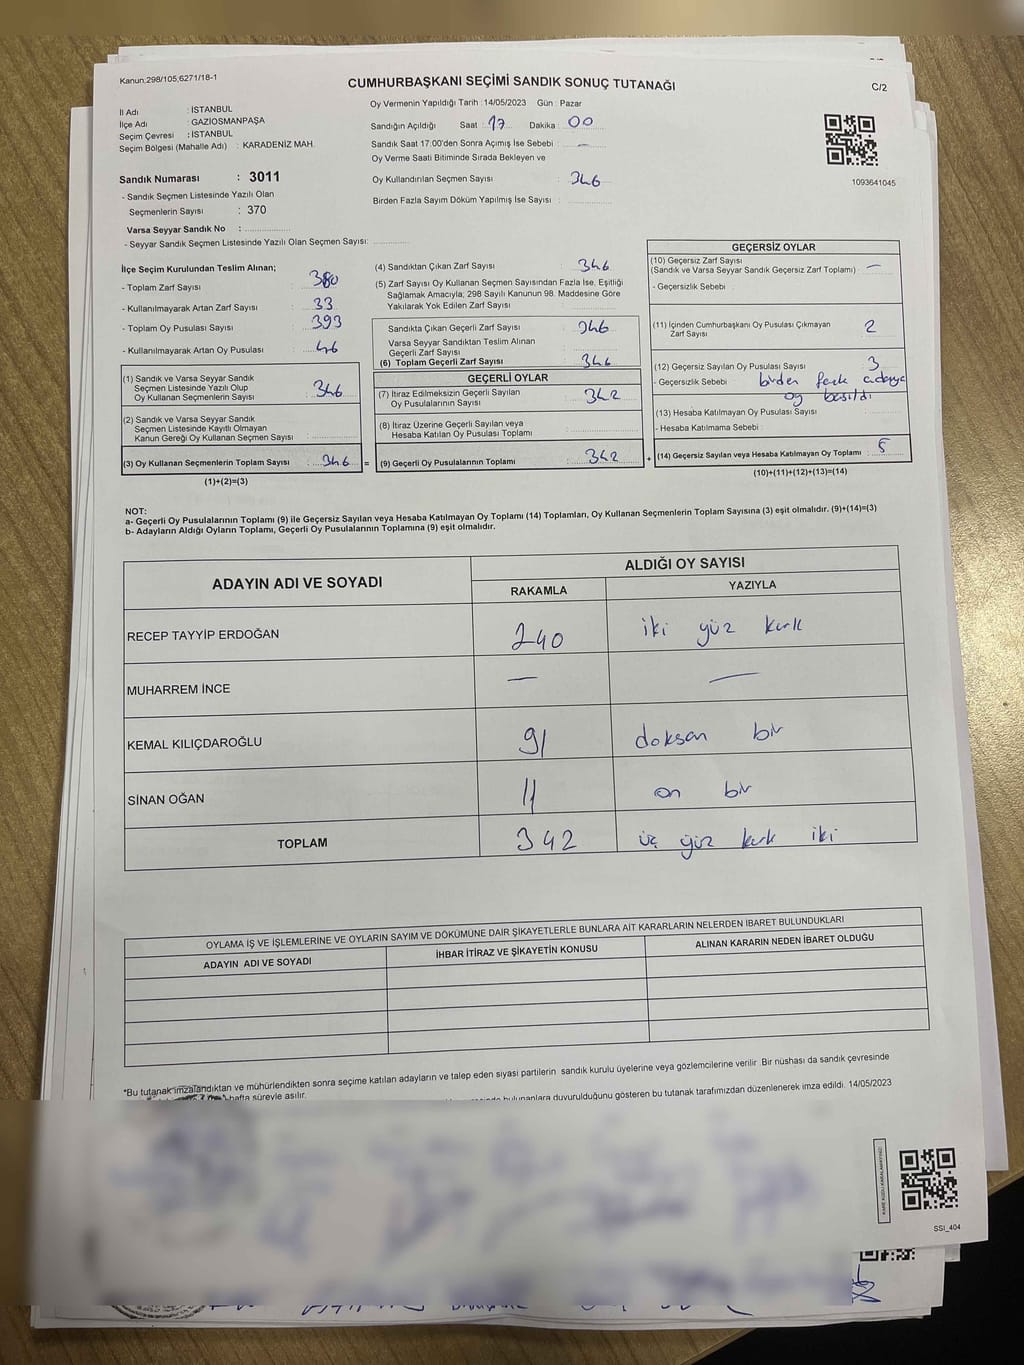 Kanun:298/105;6271/18-1
CUMHURBAŞKANI SEÇİMİ SANDIK SONUÇ TUTANAĞI
C/2
İl Adı : İSTANBUL
İlçe Adı : GAZİOSMANPAŞA
Seçim Çevresi : İSTANBUL
Seçim Bölgesi (Mahalle Adı) : KARADENİZ MAH.
Oy Vermenin Yapıldığı Tarih :14/05/2023 Gün : Pazar
Sandığın Açıldığı Saat : 17 Dakika : 00
Sandık Saat 17:00'den Sonra Açımış İse Sebebi : —
Oy Verme Saati Bitiminde Sırada Bekleyen ve
Oy Kullandırılan Seçmen Sayısı : 346
Birden Fazla Sayım Döküm Yapılmış İse Sayısı :
1093641045
Sandık Numarası : 3011
- Sandık Seçmen Listesinde Yazılı Olan
Seçmenlerin Sayısı : 370
Varsa Seyyar Sandık No :
- Seyyar Sandık Seçmen Listesinde Yazılı Olan Seçmen Sayısı:
İlçe Seçim Kurulundan Teslim Alınan;
- Toplam Zarf Sayısı : 380
- Kullanılmayarak Artan Zarf Sayısı : 33
- Toplam Oy Pusulası Sayısı : 393
- Kullanılmayarak Artan Oy Pusulası : 46
(1) Sandık ve Varsa Seyyar Sandık
Seçmen Listesinde Yazılı Olup
Oy Kullanan Seçmenlerin Sayısı : 346
(2) Sandık ve Varsa Seyyar Sandık
Seçmen Listesinde Kayıtlı Olmayan
Kanun Gereği Oy Kullanan Seçmen Sayısı :
(3) Oy Kullanan Seçmenlerin Toplam Sayısı : 346 =
(1)+(2)=(3)
(4) Sandıktan Çıkan Zarf Sayısı : 346
(5) Zarf Sayısı Oy Kullanan Seçmen Sayısından Fazla İse, Eşitliği
Sağlamak Amacıyla; 298 Sayılı Kanunun 98. Maddesine Göre
Yakılarak Yok Edilen Zarf Sayısı :
Sandıkta Çıkan Geçerli Zarf Sayısı : 346
Varsa Seyyar Sandıktan Teslim Alınan
Geçerli Zarf Sayısı :
(6) Toplam Geçerli Zarf Sayısı : 346
GEÇERLİ OYLAR
(7) İtiraz Edilmeksizin Geçerli Sayılan
Oy Pusulalarının Sayısı : 342
(8) İtiraz Üzerine Geçerli Sayılan veya
Hesaba Katılan Oy Pusulası Toplamı :
(9) Geçerli Oy Pusulalarının Toplamı : 342 +
GEÇERSİZ OYLAR
(10) Geçersiz Zarf Sayısı
(Sandık ve Varsa Seyyar Sandık Geçersiz Zarf Toplamı) : —
- Geçersizlik Sebebi :
(11) İçinden Cumhurbaşkanı Oy Pusulası Çıkmayan
Zarf Sayısı : 2
(12) Geçersiz Sayılan Oy Pusulası Sayısı : 3
- Geçersizlik Sebebi : birden fazla adaya
oy basıldı
(13) Hesaba Katılmayan Oy Pusulası Sayısı :
- Hesaba Katılmama Sebebi :
(14) Geçersiz Sayılan veya Hesaba Katılmayan Oy Toplamı : 5
(10)+(11)+(12)+(13)=(14)
NOT:
a- Geçerli Oy Pusulalarının Toplamı (9) ile Geçersiz Sayılan veya Hesaba Katılmayan Oy Toplamı (14) Toplamları, Oy Kullanan Seçmenlerin Toplam Sayısına (3) eşit olmalıdır. (9)+(14)=(3)
b- Adayların Aldığı Oyların Toplamı, Geçerli Oy Pusulalarının Toplamına (9) eşit olmalıdır.
ADAYIN ADI VE SOYADI
ALDIĞI OY SAYISI
RAKAMLA YAZIYLA
RECEP TAYYİP ERDOĞAN 240 iki yüz kırk
MUHARREM İNCE — —
KEMAL KILIÇDAROĞLU 91 doksan bir
SİNAN OĞAN 11 on bir
TOPLAM 342 üç yüz kırk iki
OYLAMA İŞ VE İŞLEMLERİNE VE OYLARIN SAYIM VE DÖKÜMÜNE DAİR ŞİKAYETLERLE BUNLARA AİT KARARLARIN NELERDEN İBARET BULUNDUKLARI
ADAYIN ADI VE SOYADI İHBAR İTİRAZ VE ŞİKAYETİN KONUSU ALINAN KARARIN NEDEN İBARET OLDUĞU
*Bu tutanak imzalandıktan ve mühürlendikten sonra seçime katılan adayların ve talep eden siyasi partilerin sandık kurulu üyelerine veya gözlemcilerine verilir. Bir nüshası da sandık çevresinde
hafta süreyle asılır.
bulunanlara duyurulduğunu gösteren bu tutanak tarafımızdan düzenlenerek imza edildi. 14/05/2023
SSI_404